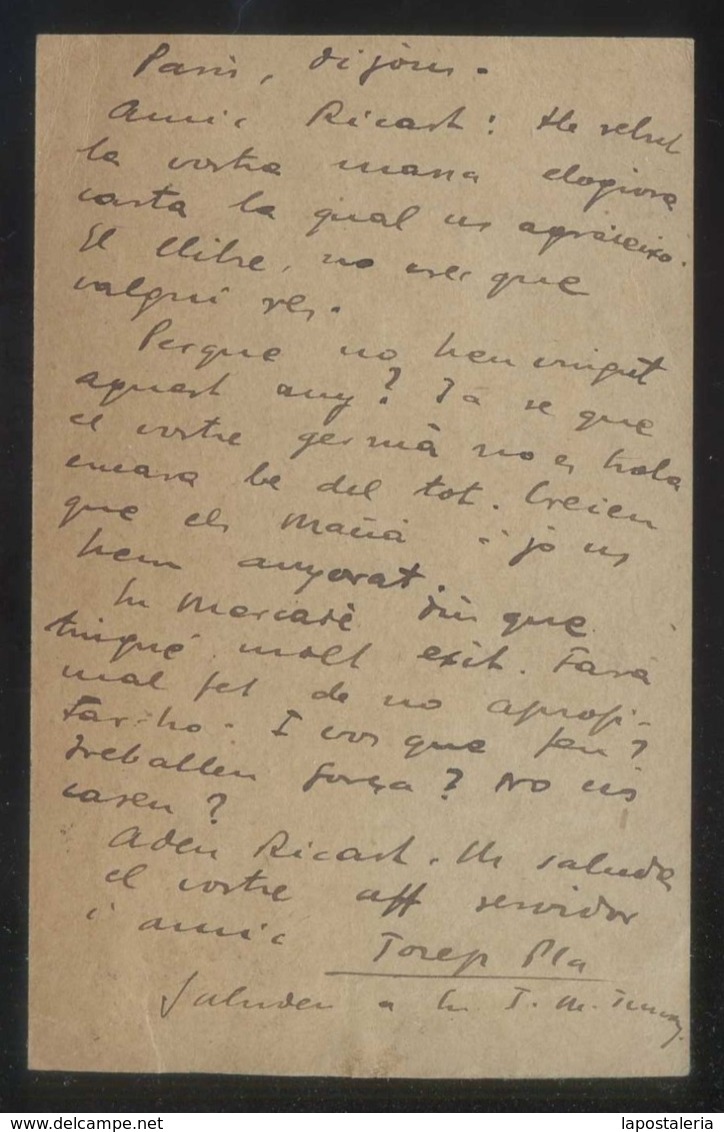 Paris, dijous.
Amic Ricart: He rebut
la vostra massa elogiosa
carta la qual us agraeixo.
El llibre, no crec que
valgui res.
Perque no heu vingut
aquest any? Ja se que
el vostre germà no es troba
encara be del tot. Creieu
que els Mañà i jo us
hem anyorat.
En Mercadé diu que
tingué molt exit. Farà
mal fet de no aprofi-
tar-ho. I vos que feu?
Treballeu força? No us
caseu?
Adeu Ricart. Us saluda
el vostre aff servidor
i amic Josep Pla
Saludeu a En J. M.
www.delcampe.net
lapostaleria